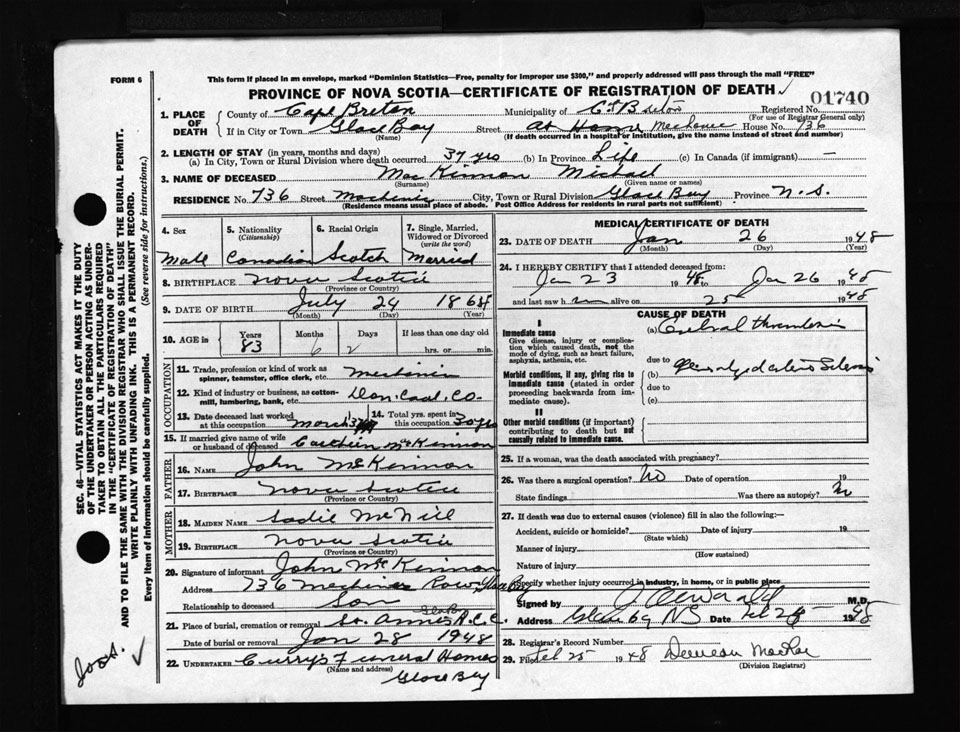 FORM 6
This form if placed in an envelope, marked "Dominion Statistics—Free, penalty for improper use $300," and properly addressed will pass through the mail "FREE"
PROVINCE OF NOVA SCOTIA—CERTIFICATE OF REGISTRATION OF DEATH
01740
1. PLACE OF DEATH
County of Cape Breton Municipality of C. Breton Registered No.
(For use of Registrar General only)
If in City or Town Glace Bay Street At Home Mechanic House No. 736
(Name) (If death occurred in a hospital or institution, give the name instead of street and number)
2. LENGTH OF STAY (in years, months and days)
(a) In City, Town or Rural Division where death occurred 37 yrs (b) In Province Life (c) In Canada (if immigrant) —
3. NAME OF DECEASED MacKinnon Michael
(Surname) (Given name or names)
RESIDENCE No. 736 Street Mechanic City, Town or Rural Division Glace Bay Province N.S.
(Residence means usual place of abode. Post Office Address for residents in rural parts not sufficient)
4. Sex
5. Nationality (Citizenship)
6. Racial Origin
7. Single, Married, Widowed or Divorced (write the word)
Male Canadian Scotch Married
8. BIRTHPLACE Nova Scotia
(Province or Country)
9. DATE OF BIRTH July 24 1864
(Month) (Day) (Year)
10. AGE is Years Months Days If less than one day
83 6 2 hrs. or min.
OCCUPATION
11. Trade, profession or kind of work as spinner, teamster, office clerk, etc. Mechanic
12. Kind of industry or business, as cotton-mill, lumbering, bank, etc. Dom. Coal. Co.
13. Date deceased last worked at this occupation March
14. Total yrs. spent in this occupation 30 yrs
15. If married give name of wife or husband of deceased McKinnon
FATHER
16. NAME John McKinnon
17. BIRTHPLACE Nova Scotia
(Province or Country)
MOTHER
18. MAIDEN NAME Sadie McNeill
19. BIRTHPLACE Nova Scotia
(Province or Country)
20. Signature of informant John McKinnon
Address 736 Mechanic Row, Glace Bay
Relationship to deceased Son
21. Place of burial, cremation or removal St. Annes R.C.C. Glace Bay
Date of burial or removal Jan 28 1948
22. UNDERTAKER Curry's Funeral Homes
(Name and address)
Glace Bay
MEDICAL CERTIFICATE OF DEATH
23. DATE OF DEATH Jan 26 1948
(Month) (Day) (Year)
24. I HEREBY CERTIFY that I attended deceased from:
Jan 23 1948 to Jan 26 1948
and last saw h im alive on 25 1948
CAUSE OF DEATH
I
Immediate cause
Give disease, injury or complication which caused death, not the mode of dying, such as heart failure, asphyxia, asthenia, etc.
(a) Cerebral thrombosis
due to
Morbid conditions, if any, giving rise to immediate cause (stated in order proceeding backwards from immediate cause).
(b) Generalyzed arterio Sclerosis
due to
(c)
II
Other morbid conditions (if important) contributing to death but not causally related to immediate cause.
25. If a woman, was the death associated with pregnancy?
26. Was there a surgical operation? No Date of operation 19
State findings Was there an autopsy? No
27. If death was due to external causes (violence) fill in also the following:—
Accident, suicide or homicide? Date of injury 19
(State which)
Manner of injury
(How sustained)
Nature of injury
Specify whether injury occurred in industry, in home, or in public place
Signed by M.D.
Address Glace Bay NS Date Feb 1948
28. Registrar's Record Number
29. Filed Feb 25 1948 MacRae
(Division Registrar)
SEC. 46—VITAL STATISTICS ACT MAKES IT THE DUTY
OF THE UNDERTAKER OR PERSON ACTING AS UNDERTAKER TO OBTAIN ALL THE PARTICULARS REQUIRED
IN THE "CERTIFICATE OF REGISTRATION OF DEATH"
AND TO FILE THE SAME WITH THE DIVISION REGISTRAR WHO SHALL ISSUE THE BURIAL PERMIT.
WRITE PLAINLY WITH UNFADING INK. THIS IS A PERMANENT RECORD.
Every item of information should be carefully supplied. (See reverse side for instructions.)